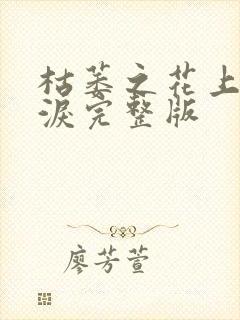 枯萎之花上
淚完整版
廖芳萱